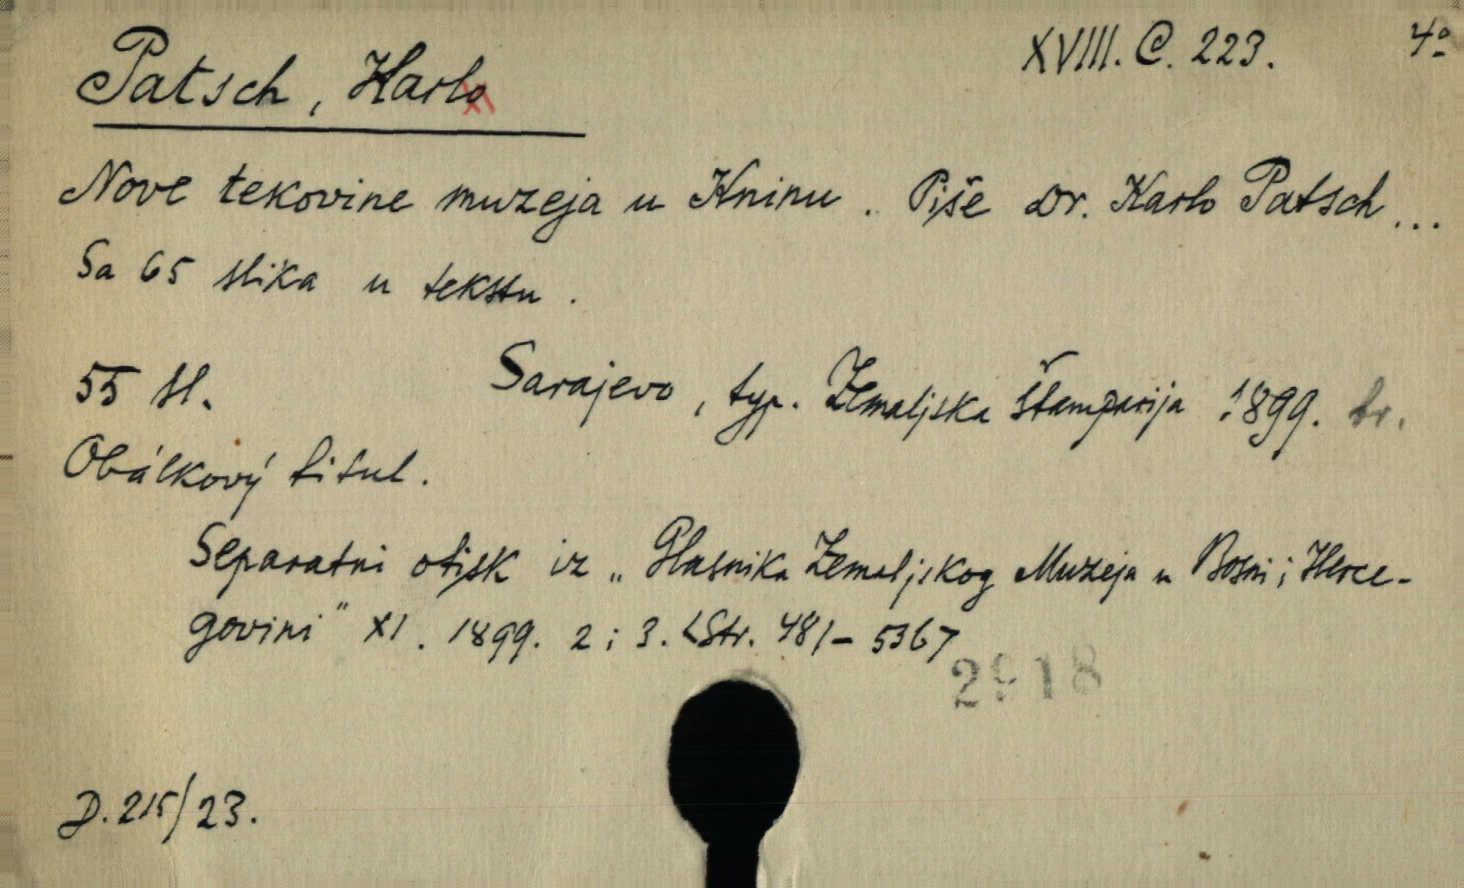 XVIII. C. 223. 4º
Patsch, Karlo
Nove tekovine muzeja u Kninu. Piše Dr. Karlo Patsch...
Sa 65 slika u tekstu.
55 sl. Sarajevo, typ. Zemaljska Štamparija 1899. br.
Obálkový titul.
Separatni otisk iz „Glasnika Zemaljskog Muzeja u Bosni i Herce-
govini" XI. 1899. 2 i 3. <Str. 481-536>
2918
D. 215/23.